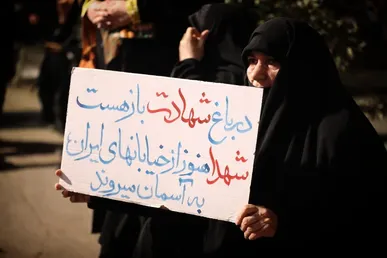 در باغ شهادت باز هست
شهدا هنوز از خیابانهای ایران
به آسمان میروند